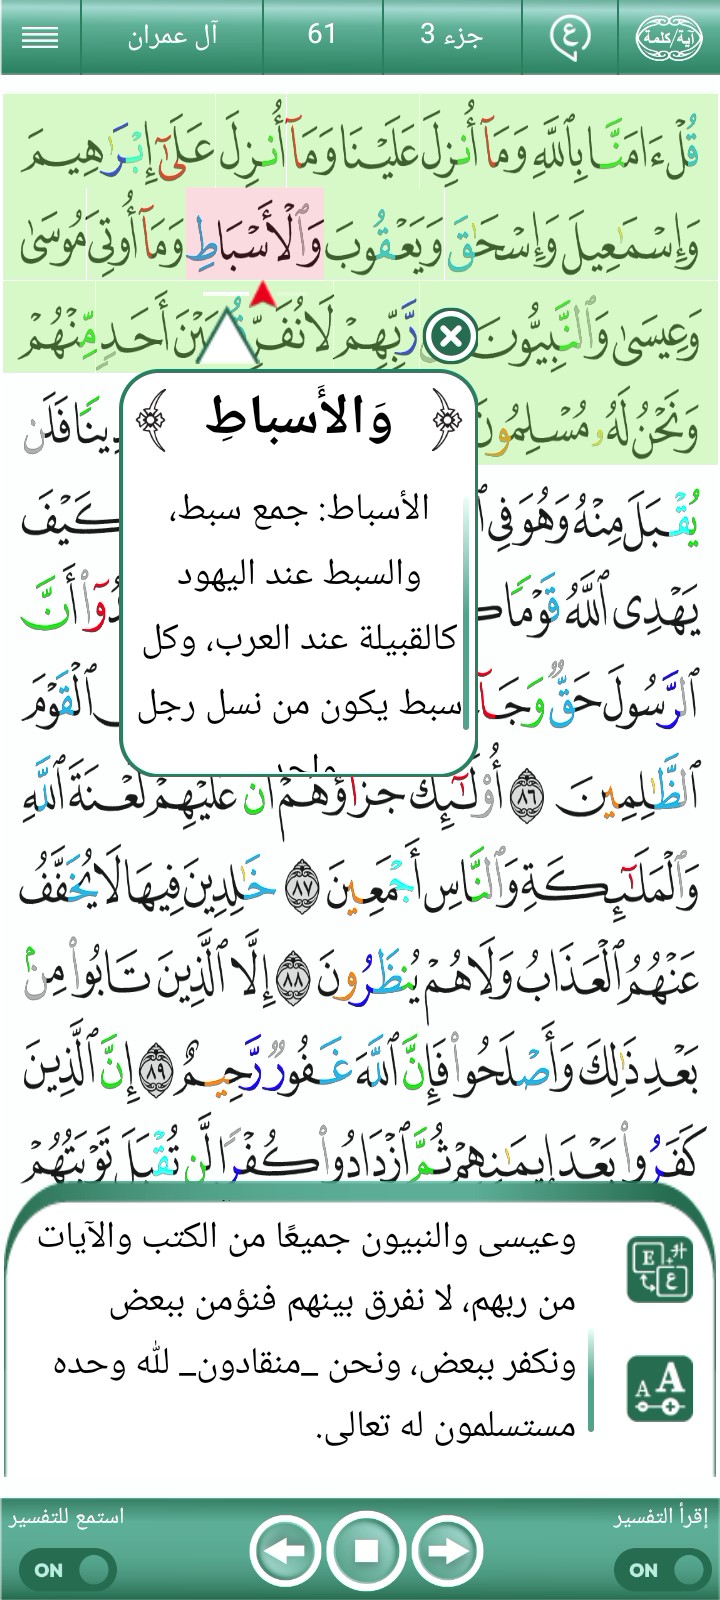 آية/كلمة
ع
جزء 3
61
آل عمران
قُلْ ءَامَنَّا بِٱللَّهِ وَمَآ أُنزِلَ عَلَيْنَا وَمَآ أُنزِلَ عَلَىٰٓ إِبْرَٰهِيمَ
وَإِسْمَٰعِيلَ وَإِسْحَٰقَ وَيَعْقُوبَ وَٱلْأَسْبَاطِ وَمَآ أُوتِىَ مُوسَىٰ
وَعِيسَىٰ وَٱلنَّبِيُّونَ رَّبِّهِمْ لَا نُفَرِّقُ بَيْنَ أَحَدٍ مِّنْهُمْ
وَنَحْنُ لَهُۥ مُسْلِمُونَ فَلَن
يُقْبَلَ مِنْهُ وَهُوَ فِى كَيْفَ
يَهْدِى ٱللَّهُ قَوْمًا أَنَّ
ٱلرَّسُولَ حَقٌّ ٱلْقَوْمَ
ٱلظَّٰلِمِينَ ٨٦ أُو۟لَٰٓئِكَ جَزَآؤُهُمْ أَنَّ عَلَيْهِمْ لَعْنَةَ ٱللَّهِ
وَٱلْمَلَٰٓئِكَةِ وَٱلنَّاسِ أَجْمَعِينَ ٨٧ خَٰلِدِينَ فِيهَا لَا يُخَفَّفُ
عَنْهُمُ ٱلْعَذَابُ وَلَا هُمْ يُنظَرُونَ ٨٨ إِلَّا ٱلَّذِينَ تَابُوا۟ مِنۢ
بَعْدِ ذَٰلِكَ وَأَصْلَحُوا۟ فَإِنَّ ٱللَّهَ غَفُورٌ رَّحِيمٌ ٨٩ إِنَّ ٱلَّذِينَ
كَفَرُوا۟ بَعْدَ إِيمَٰنِهِمْ ثُمَّ ٱزْدَادُوا۟ كُفْرًا لَّن تُقْبَلَ تَوْبَتُهُمْ
﴿ وَالأَسباطِ ﴾
الأسباط: جمع سبط،
والسبط عند اليهود
كالقبيلة عند العرب، وكل
سبط يكون من نسل رجل
وعيسى والنبيون جميعًا من الكتب والآيات
من ربهم، لا نفرق بينهم فنؤمن ببعض
ونكفر ببعض، ونحن _منقادون_ لله وحده
مستسلمون له تعالى.
E ع
A A
إقرأ التفسير
استمع للتفسير
ON
ON